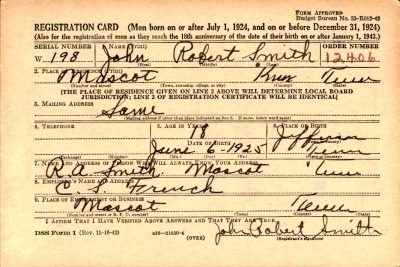 FORM APPROVED
Budget Bureau No. 33-R012-42
REGISTRATION CARD (Men born on or after July 1, 1924, and on or before December 31, 1924)
(Also for the registration of men as they reach the 18th anniversary of the date of their birth on or after January 1, 1943.)
SERIAL NUMBER 1. NAME (Print) ORDER NUMBER
W 198 John Robert Smith 12406
(First) (Middle) (Last)
2. PLACE OF RESIDENCE (Print)
Mascot Knox Tenn
(Number and street) (Town, township, village, or city) (County) (State)
[THE PLACE OF RESIDENCE GIVEN ON LINE 2 ABOVE WILL DETERMINE LOCAL BOARD
JURISDICTION; LINE 2 OF REGISTRATION CERTIFICATE WILL BE IDENTICAL]
3. MAILING ADDRESS
Same
[Mailing address if other than place indicated on line 2. If same, insert word same]
4. TELEPHONE 5. AGE IN YEARS 6. PLACE OF BIRTH
18 Jefferson
DATE OF BIRTH
June 6 - 1925 Tenn
(Exchange) (Number) (Mo.) (Day) (Yr.) (State or country)
7. NAME AND ADDRESS OF PERSON WHO WILL ALWAYS KNOW YOUR ADDRESS
R. A. Smith Mascot Tenn
8. EMPLOYER'S NAME AND ADDRESS
C. S. French
9. PLACE OF EMPLOYMENT OR BUSINESS
Mascot Tenn
(Number and street or R. F. D. number) (Town) (County) (State)
I AFFIRM THAT I HAVE VERIFIED ABOVE ANSWERS AND THAT THEY ARE TRUE.
DSS Form 1 (Rev. 11-16-42) (OVER) John Robert Smith
(Registrant's signature)